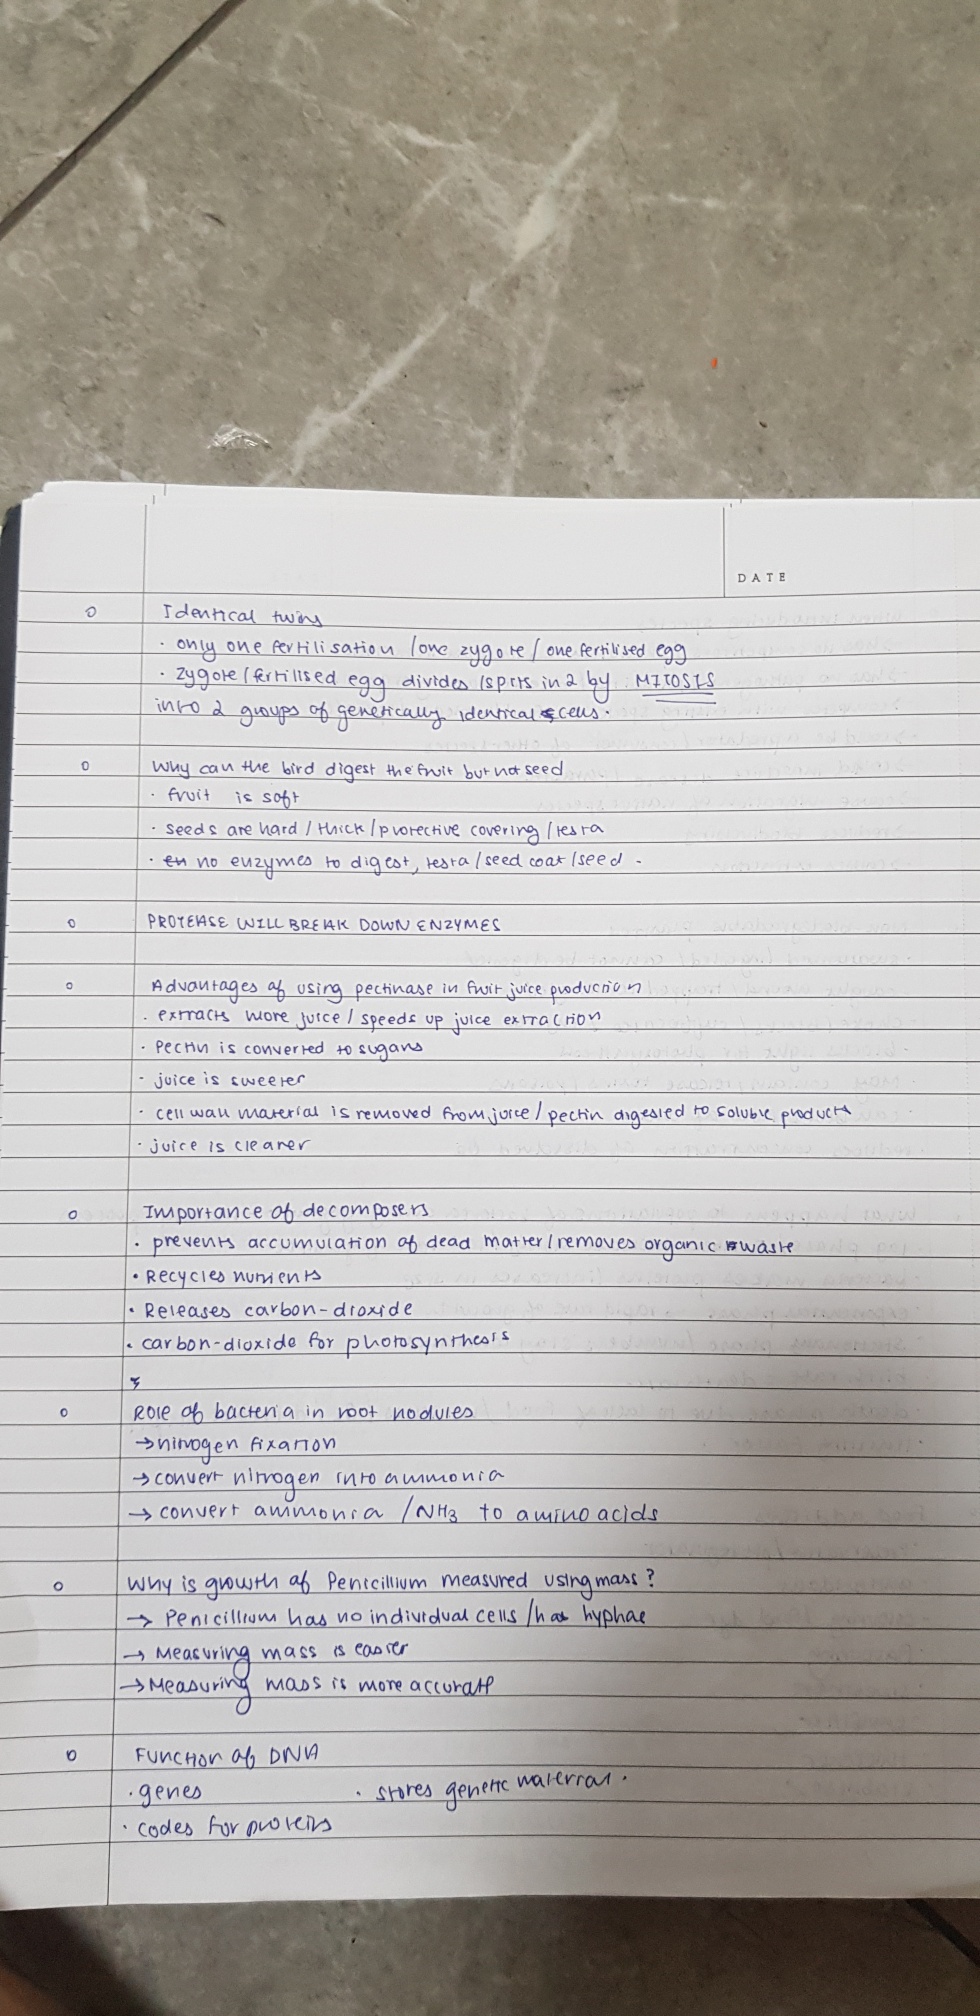 DATE
Identical twins
· only one fertilisation /one zygote / one fertilised egg
· zygote / fertilised egg divides /splits in 2 by MITOSIS
into 2 groups of genetically identical cells.
Why can the bird digest the fruit but not seed
· fruit is soft
· seeds are hard / thick / protective covering / testa
· no enzymes to digest, testa / seed coat / seed .
PROTEASE WILL BREAK DOWN ENZYMES
Advantages of using pectinase in fruit juice production
· extracts more juice / speeds up juice extraction
· Pectin is converted to sugars
· juice is sweeter
· cell wall material is removed from juice / pectin digested to soluble products
· juice is clearer
Importance of decomposers
· prevents accumulation of dead matter / removes organic waste
· Recycles nutrients
· Releases carbon-dioxide
· carbon-dioxide for photosynthesis
Role of bacteria in root nodules
→ nitrogen fixation
→ convert nitrogen into ammonia
→ convert ammonia / NH3 to amino acids
Why is growth of Penicillium measured using mass ?
→ Penicillium has no individual cells / has hyphae
→ Measuring mass is easier
→ Measuring mass is more accurate
Function of DNA
· genes · stores genetic material .
· codes for proteins